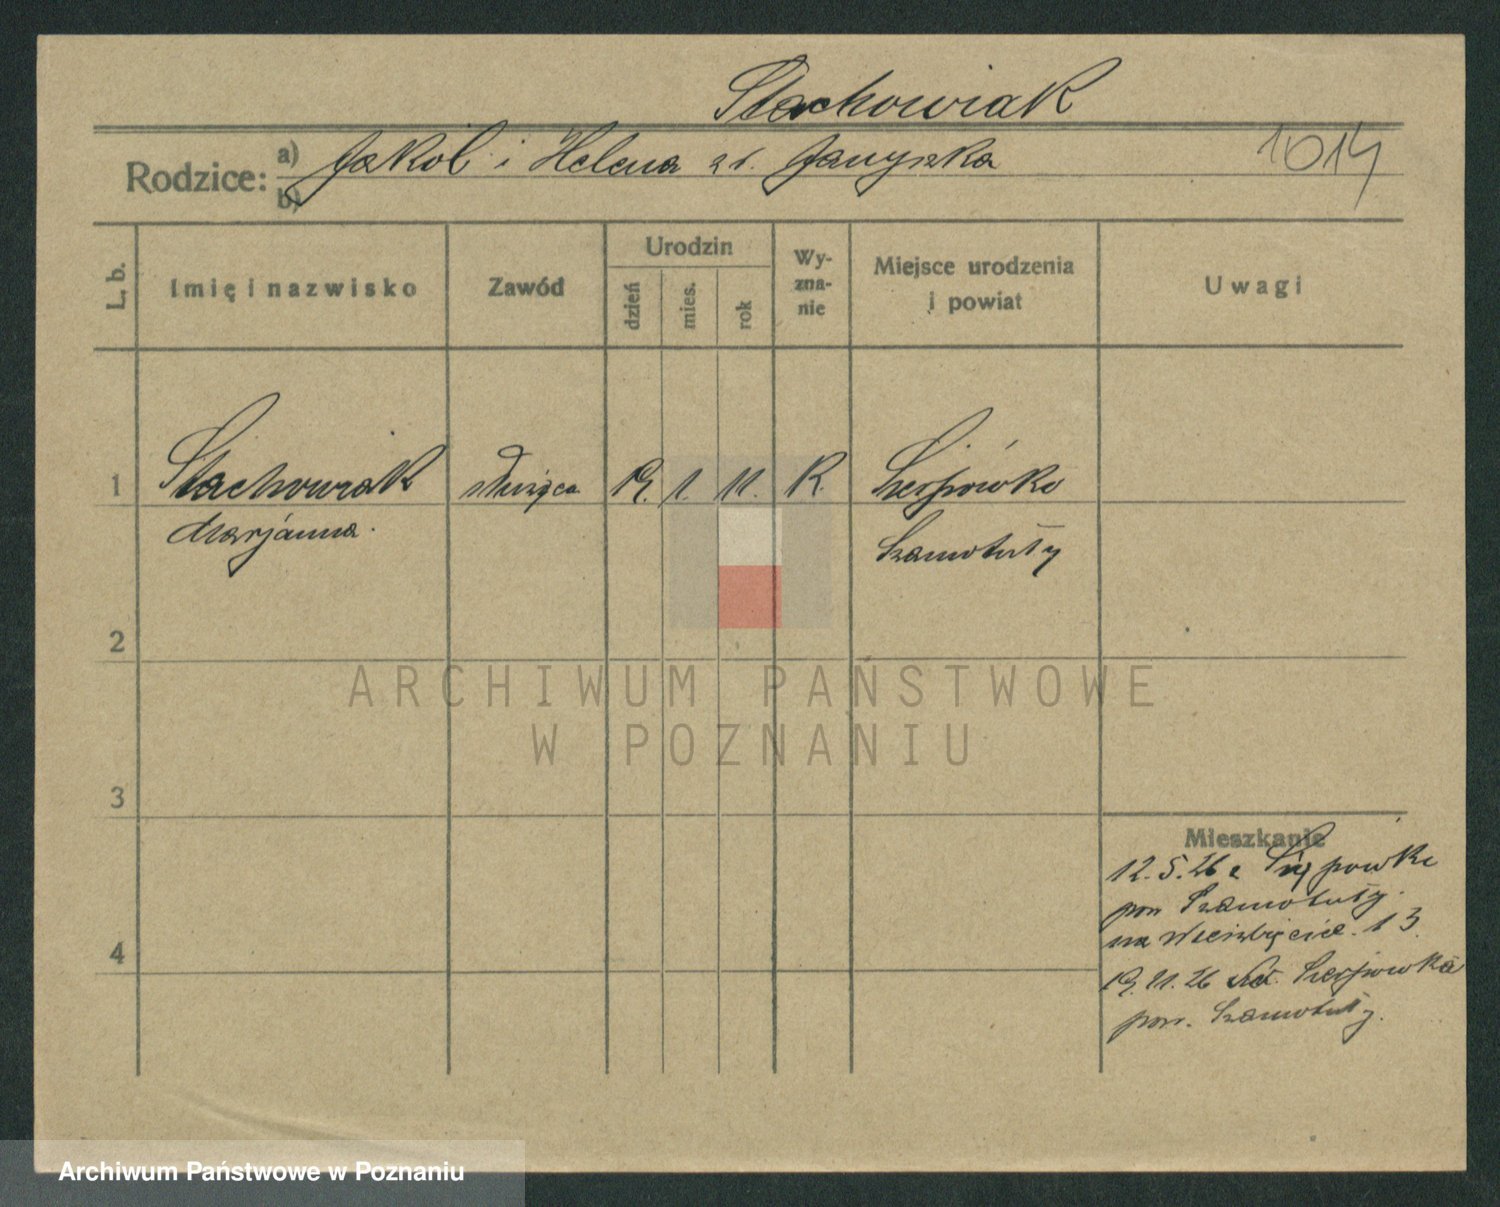 Stachowiak
Rodzice: a) Jakób i Helena zd. Januszka
b)
1014
L. b.
Imię i nazwisko
Zawód
Urodzin
dzień
mies.
rok
Wy-
zna-
nie
Miejsce urodzenia
i powiat
Uwagi
1 Stachowiak służąca 19. 1. 11. R. Sierpówko
Marjanna. Szamotuły
2
3
4
Mieszkanie
12.5.26 z
pow Szamotuły.
na 13
19.11.26 Sierpówka
pow. Szamotuły.
ARCHIWUM PAŃSTWOWE
W POZNANIU
Archiwum Państwowe w Poznaniu